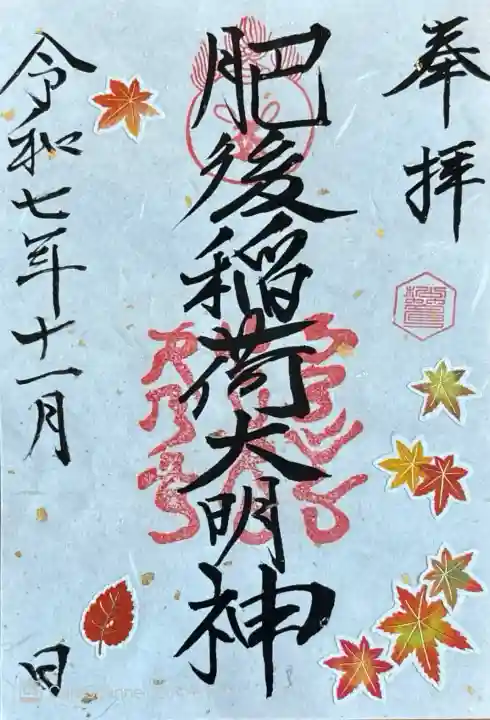 奉拝
肥後稲荷大明神
令和七年十一月 日